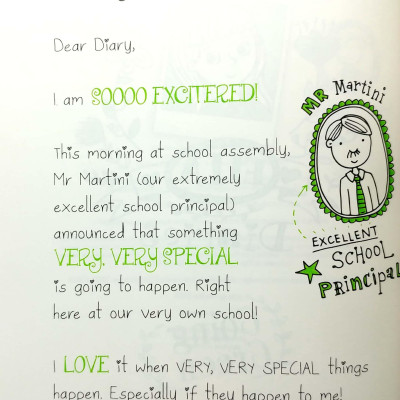 Dear Diary,
I am SOOOO EXCITERED!
This morning at school assembly,
Mr Martini (our extremely
excellent school principal)
announced that something
VERY, VERY SPECIAL
is going to happen. Right
here at our very own school!
I LOVE it when VERY, VERY SPECIAL things
happen. Especially if they happen to me!
MR Martini
EXCELLENT
SCHOOL
PRincipal